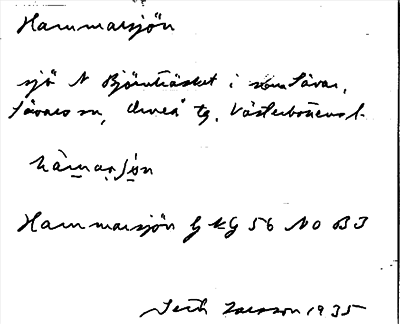 Hammarsjön
sjö N Björnträsket i Sävar,
Sävars sn, Umeå tg, Västerbottens l.
hàmarʃø̀n
Hammarsjön GKG 56 NO B3
Larsson 1935